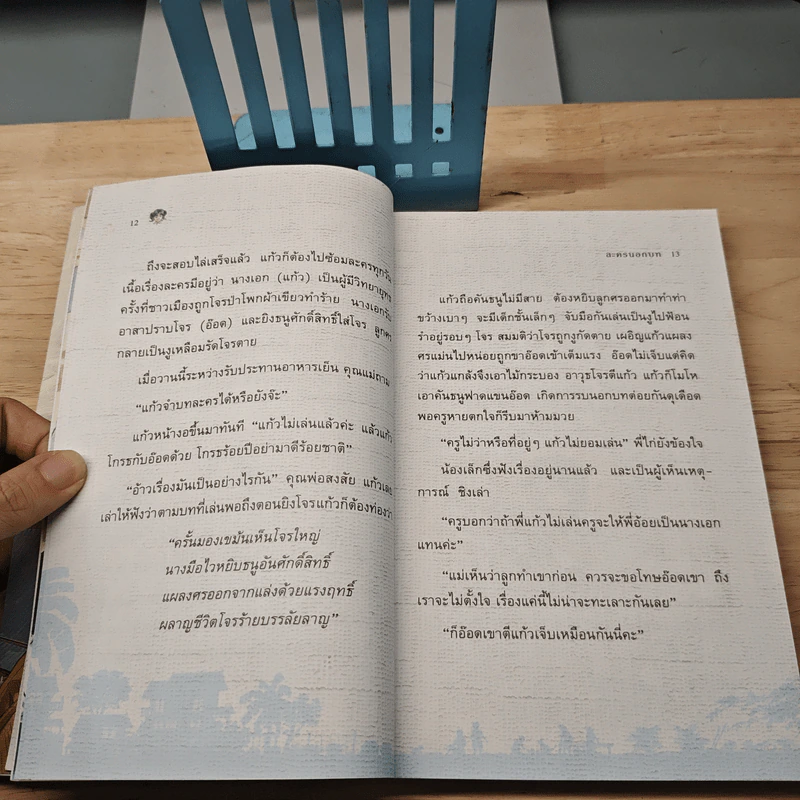 12
ถึงจะสอบไล่เสร็จแล้ว แก้วก็ต้องไปซ้อมละครทุกวัน
เนื้อเรื่องละครมีอยู่ว่า นางเอก (แก้ว) เป็นผู้มีวิทยายุทธ
ครั้งที่ชาวเมืองถูกโจรป่าโพกผ้าเขียวทำร้าย นางเอกรับ
อาสาปราบโจร (อ๊อด) และยิงธนูศักดิ์สิทธิ์ใส่โจร ลูกศร
กลายเป็นงูเหลือมรัดโจรตาย
เมื่อวานนี้ระหว่างรับประทานอาหารเย็น คุณแม่ถาม
“แก้วจำบทละครได้หรือยังจ๊ะ”
แก้วหน้างอขึ้นมาทันที “แก้วไม่เล่นแล้วค่ะ แล้วแก้ว
โกรธกับอ๊อดด้วย โกรธร้อยปีอย่ามาดีร้อยชาติ”
“อ้าวเรื่องมันเป็นอย่างไรกัน” คุณพ่อสงสัย แก้วเลย
เล่าให้ฟังว่าตามบทที่เล่นพอถึงตอนยิงโจรแก้วก็ต้องท่องว่า
“ครั้นมองเขม้นเห็นโจรใหญ่
นางมือไวหยิบธนูอันศักดิ์สิทธิ์
แผลงศรออกจากแล่งด้วยแรงฤทธิ์
ผลาญชีวิตโจรร้ายบรรลัยลาญ”
ละครนอกบท 13
แก้วถือคันธนูไม่มีสาย ต้องหยิบลูกศรออกมาทำท่า
ขว้างเบาๆ จะมีเด็กชั้นเล็กๆ จับมือกันเล่นเป็นงูไปฟ้อน
รำอยู่รอบๆ โจร สมมติว่าโจรถูกงูกัดตาย เผอิญแก้วแผลง
ศรแม่นไปหน่อยถูกขาอ๊อดเข้าเต็มแรง อ๊อดไม่เจ็บแต่คิด
ว่าแก้วแกล้งจึงเอาไม้กระบอง อาวุธโจรตีแก้ว แก้วก็โมโห
เอาคันธนูฟาดแขนอ๊อด เกิดการรบนอกบทต่อยกันตุเดือด
พอครูหายตกใจก็รีบมาห้ามมวย
“ครูไม่ว่าหรือที่อยู่ๆ แก้วไม่ยอมเล่น” พี่ไก่ยังข้องใจ
น้องเล็กซึ่งฟังเรื่องอยู่นานแล้ว และเป็นผู้เห็นเหตุ-
การณ์ ชิงเล่า
“ครูบอกว่าถ้าพี่แก้วไม่เล่นครูจะให้พี่อ้อยเป็นนางเอก
แทนค่ะ”
“แม่เห็นว่าลูกทำเขาก่อน ควรจะขอโทษอ๊อดเขา ถึง
เราจะไม่ตั้งใจ เรื่องแค่นี้ไม่น่าจะทะเลาะกันเลย”
“ก็อ๊อดเขาตีแก้วเจ็บเหมือนกันนี่คะ”